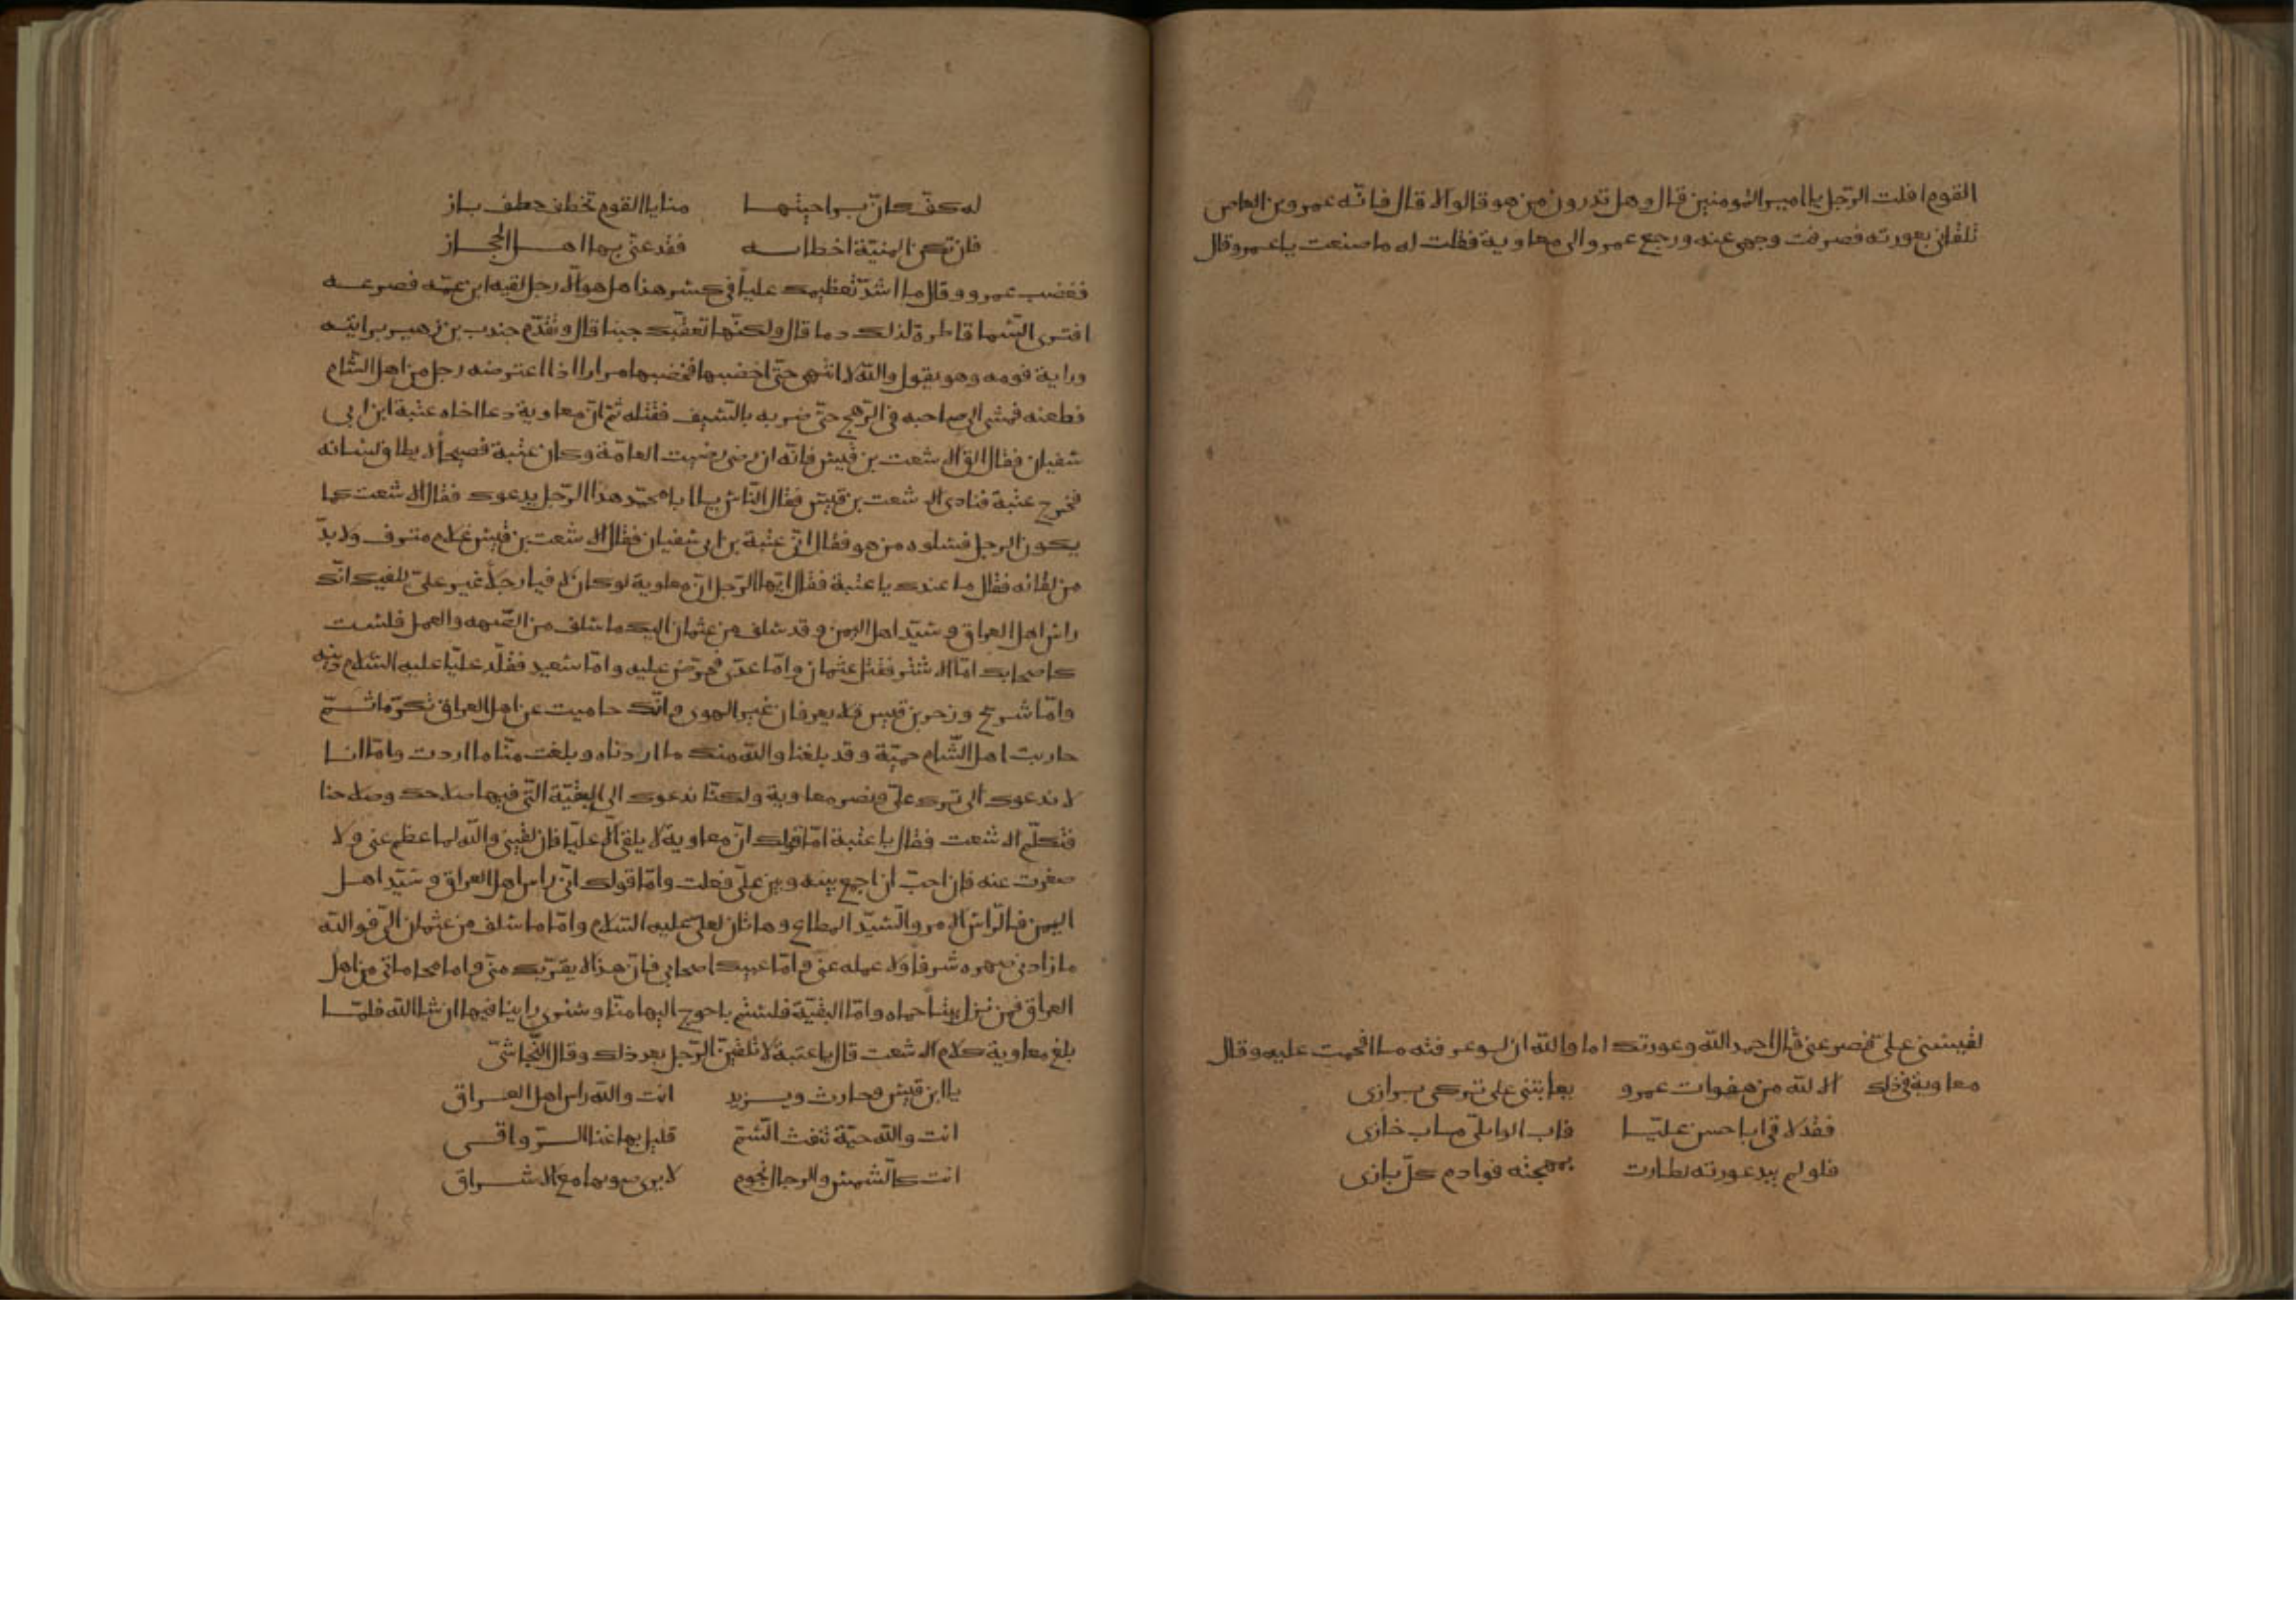 القوم افلت الرّجل يا امير المومنين قال وهل تدرون من هو قالوا لا قال فانّه عمرو بن العاص
تلقانى بعورته فصرفت وجهى عنه ورجع عمرو الى معاوية فقلت له ما صنعت يا عمرو قال
لقيننى علىّ فصرعنى قال احمد الله وعورتك اما والله ان لو عرفته ما اقحمت عليه وقال
معاوية فى ذلك الا لله من هفوات عمرو يعاتبنى على تركى برازى
فقد لاقى ابا حسن عليّا فاب الوايلى ماب خازى
فلو لم يبد عورته لطارت بمهجته قوادم كلّ بازى
له كفّ كانّ براحيتها منايا القوم تخطف خطف باز
فان تكن المنيّة اخطاته فقد غنّى بها اهل الحجاز
فغضب عمرو وقال ما اشدّ تعظيمك علياً فى كسر هذا هل هو الّا رجل لقيه ابن عمّه فصرعه
افترى السّما قاطرة لذلك دما قال ولكنّها تعقّبك جبنا قال وتقدّم جندب بن زهير برايته
وراية قومه وهو يقول والله لا انتهى حتّى اخضبها فخضبها مرارا اذا اعترضه رجل من اهل الشّام
فطعنه فمشى الى صاحبه فى الرّمح حتّى ضربه بالسّيف فقتله ثمّ انّ معاوية دعا اخاه عتبة ابن ابى
سفيان فقال الق الاشعت بن قيس فانّه ان رضى رضيت العامّة وكان عتبة فصيحاً لا يطاق لسانه
فخرج عتبة فنادى الاشعت بن قيس فقال النّاس يا ابا محمّد هذا الرّجل يدعوك فقال الاشعت كما
يكون الرجل فسلوه من هو فقال انّى عتبة بن ابى سفيان فقال الاشعت بن قيس غلام مترف ولا بدّ
من لقائه فقال ما عندك يا عتبة فقال ايّها الرّجل انّ معاوية لو كان لاقيا رجلاً غير علىّ للقيك انّك
راس اهل العراق وسيّد اهل اليمن وقد سلف من عثمان اليك ما سلف من الصّهر والعمل فلست
كاصحابك امّا الاشتر فقتل عثمان وامّا عدىّ فحرّض عليه وامّا سعيد فقلّد عليّا عليه السّلام دينه
وامّا شريح وزحر بن قيس فلا يعرفان غير الهوى وانّك حاميت عن اهل العراق تكرّما ثمّ
حاربت اهل الشّام حميّة وقد بلغنا والله منك ما اردناه وبلغت منّا ما اردت وامّا انا
لا ندعوك الى ترك علىّ ونصر معاوية ولكنّا ندعوك الى البقيّة الّتى فيها صلاحك وصلاحنا
فتكلّم الاشعت فقال يا عتبة امّا قولك انّ معاوية لا يلقى الّا عليّا فان لقينى والله لما عظم عنى ولا
صغرت عنه فان احبّ ان اجمع بينه وبين علىّ فعلت وامّا قولك انّى راس اهل العراق وسيّد اهل
اليمن فالرّاس الامر والسّيّد المطاع وهاتان لعلىّ عليه السّلام وامّا ما سلف من عثمان الىّ فوالله
ما زادنى صهره شرفا ولا عمله عنى وامّا عيبك اصحابى فانّ هذا لا يقرّبك منّى واما محاماتى عن اهل
العراق فمن نزل بيتاً حماه وامّا البقيّة فلستم باحوج اليها منّا وسنرى راينا فيها ان شا الله فلمّا
بلغ معاوية كلام الاشعت قال يا عتبة لا تلقينّ الرّجل بعد ذلك وقال النّجاشىّ
يا ابن قيس وحارث ويزيد انت والله راس اهل العراق
انت والله حيّة تنفث السّمّ قليل بها غنا السرّ واقى
انت كالشّمس والرجال نجوم لا يرى ضوءها مع الاشراق